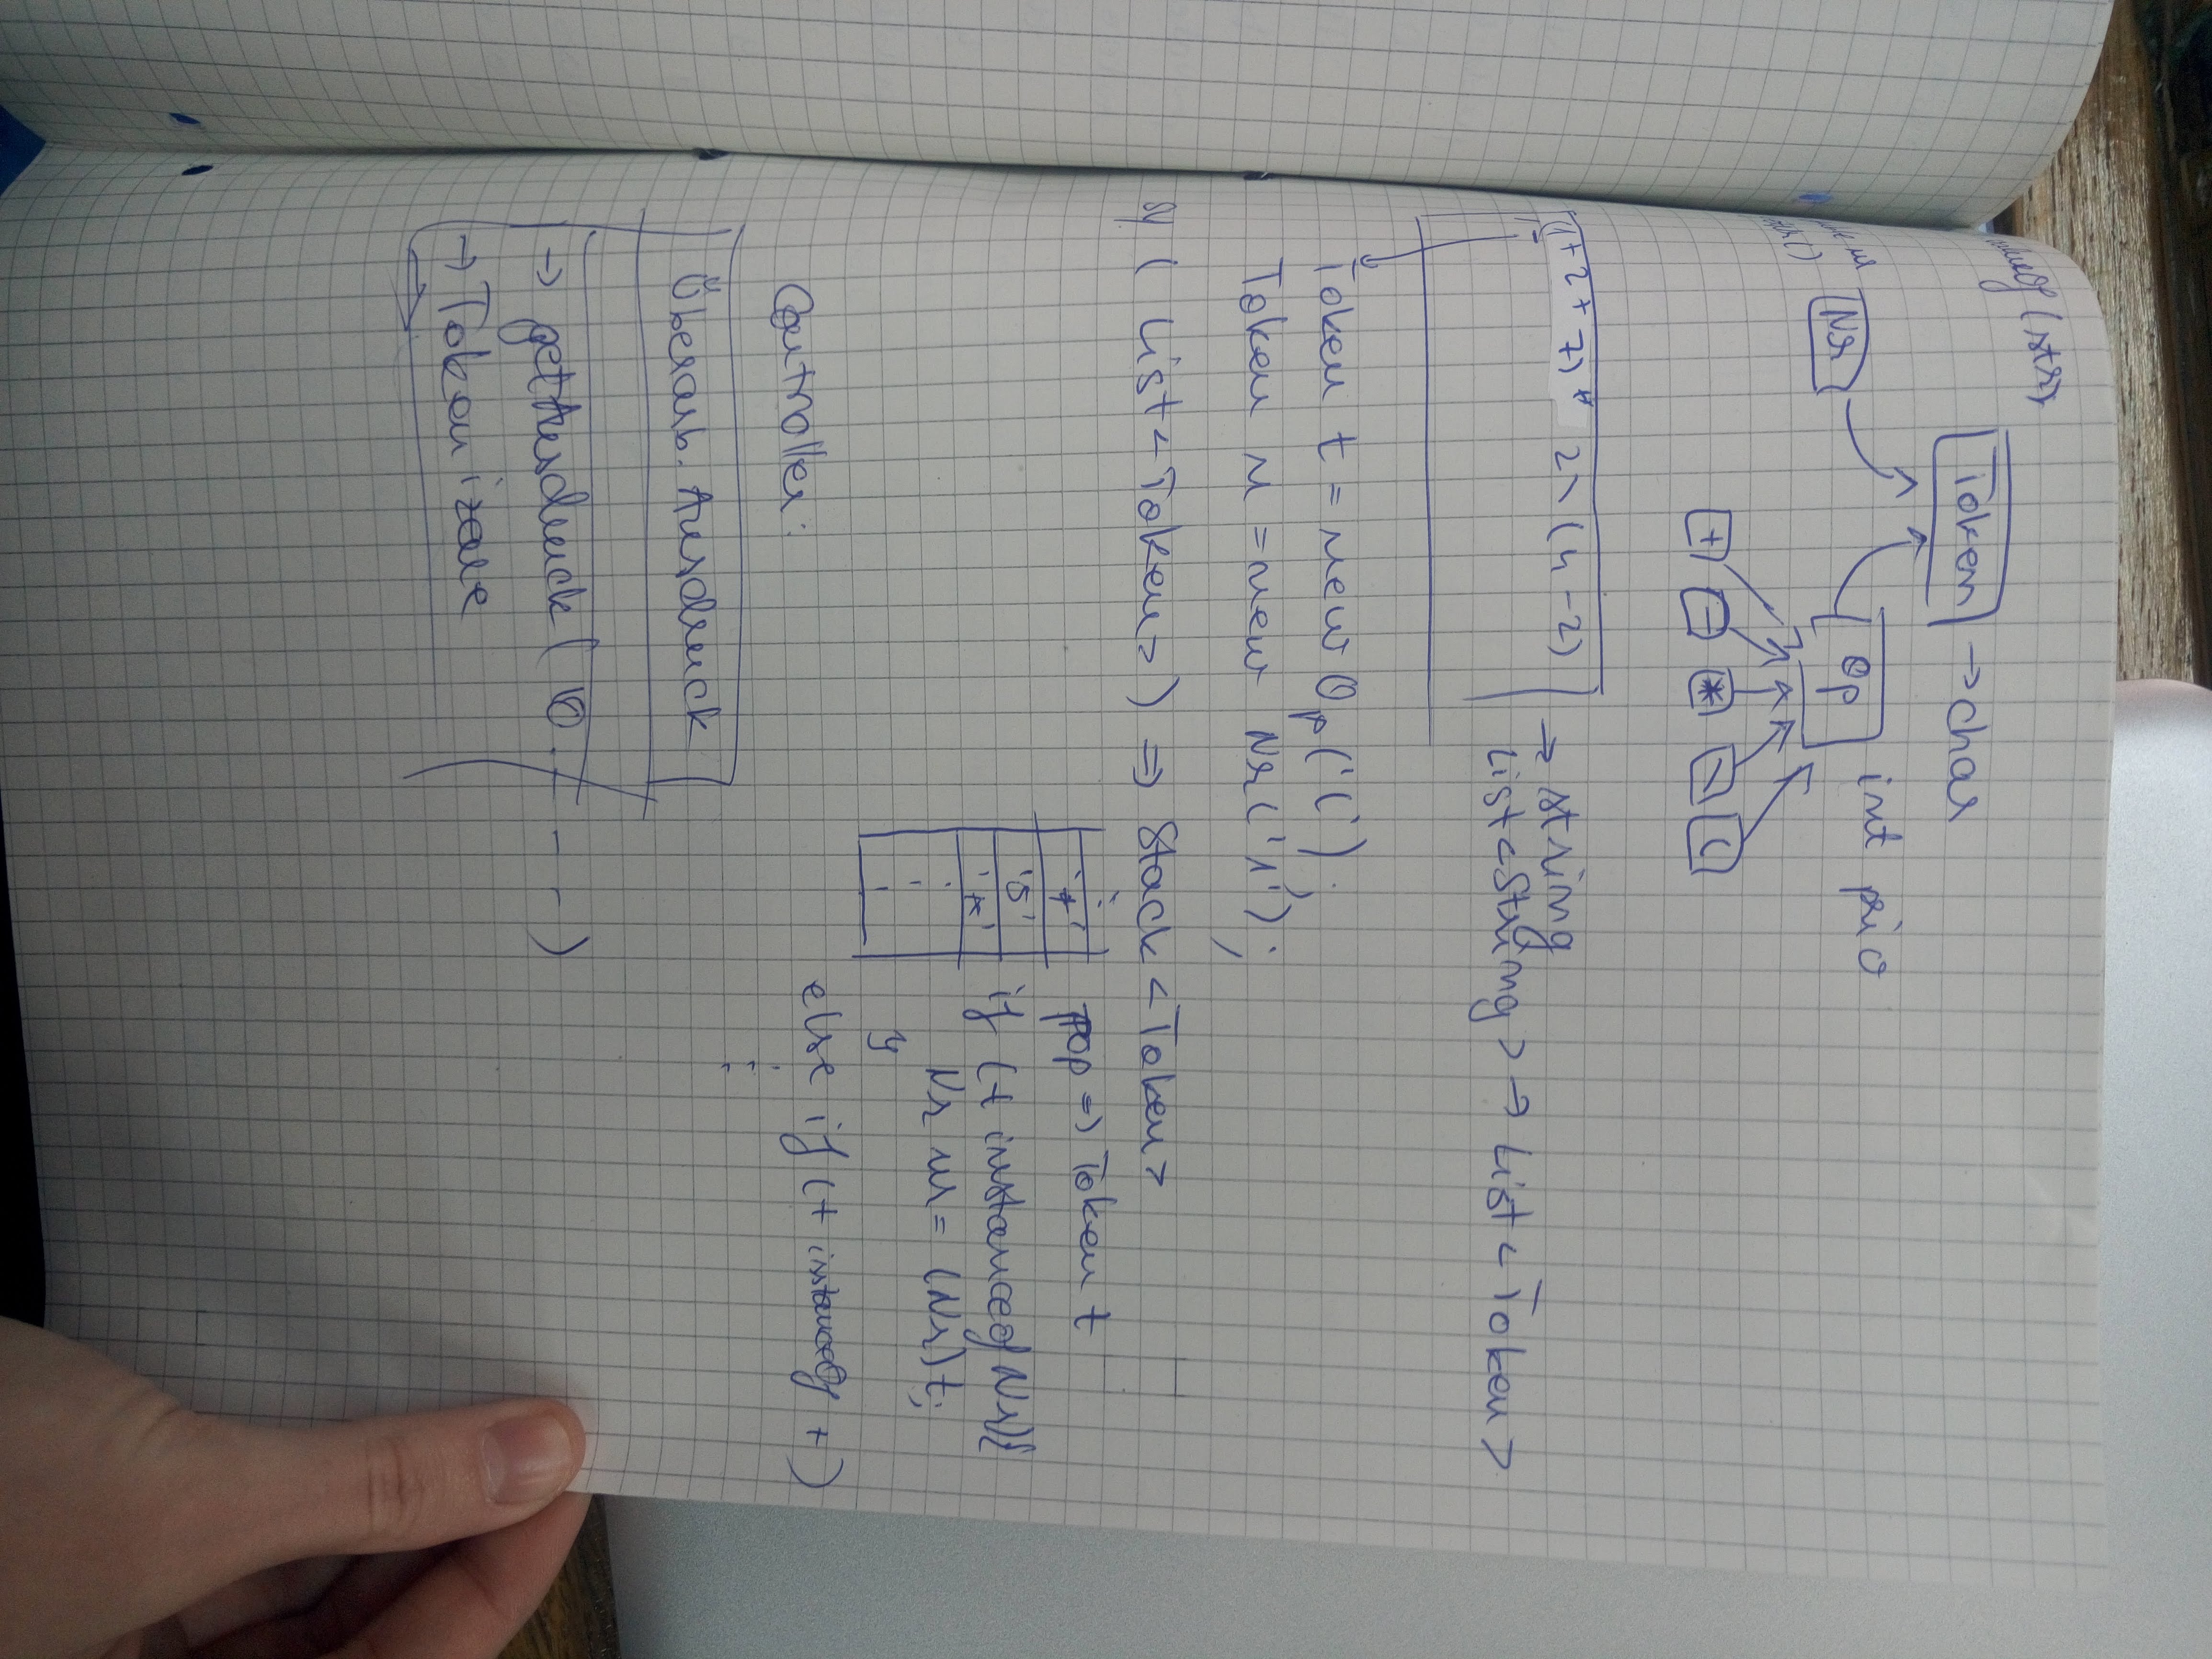 valueOf(str)
Token → char
int prio
Nr
Op
+ - * \ (
(1+2+7)* 2\(4-2)
→ string
List<String> → List<Token>
Token t = new Op('(');
Token n = new Nr('1');
sy ( List<Token>) ⇒ Stack<Token>
'+'
pop ⇒ Token t
'5'
if (t instanceof Nr){
'*'
Nr nr = (Nr)t;
}
else if (t instanceOf +)
Controller:
Überarb. Ausdruck
→ getAusdruck( 10 - - - )
→ Tokenizare